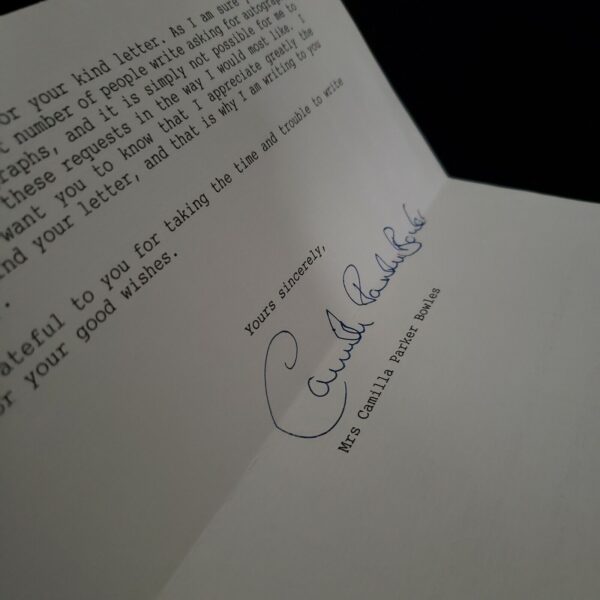 or your kind letter. As I am sure
t number of people write asking for autogra
raphs, and it is simply not possible for me to
these requests in the way I would most like. I
want you to know that I appreciate greatly the
nd your letter, and that is why I am writing to you
.
ateful to you for taking the time and trouble to write
or your good wishes.
Yours sincerely,
Camilla Parker Bowles
Mrs Camilla Parker Bowles